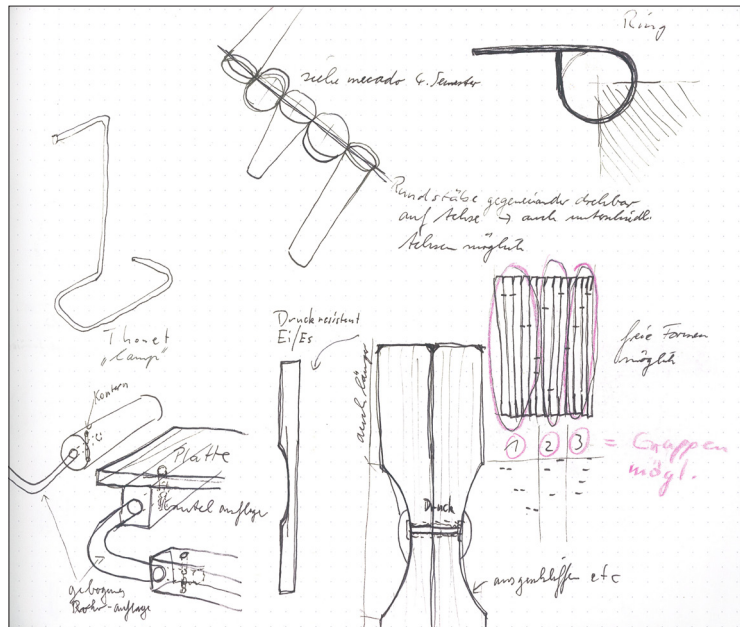 Ring
siehe mecado 4. Semester
Rundstäbe gegeneinander drehbar
auf Achse → auch unterschiedl.
Achsen möglich
Thonet
"Lamp"
Druckresistent
Ei/Es
auch länger
freie Formen
möglich
1 2 3 = Gruppen
mögl.
Kontern
Platte
auflage
Druck
ausgeschliffen etc
gebogene
Rohr-auflage